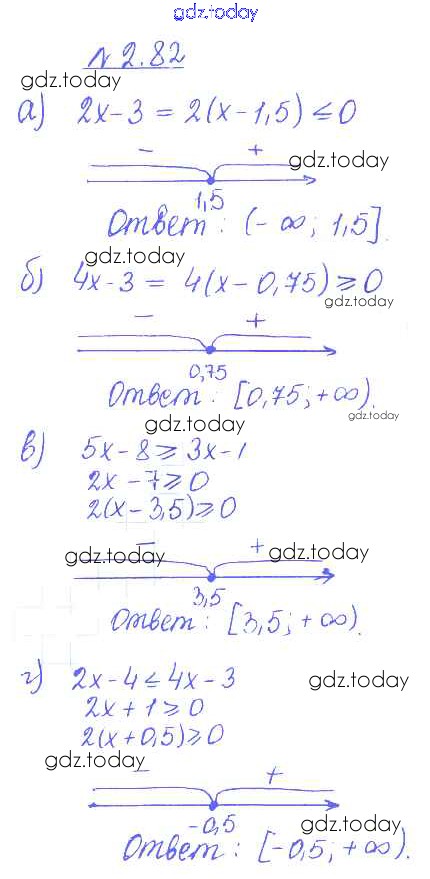 gdz.today
№ 2.82
gdz.today
а) 2x-3 = 2(x-1,5) ≤ 0
- +
gdz.today
1,5
Ответ: (-∞; 1,5].
gdz.today
б) 4x-3 = 4(x-0,75) ≥ 0
gdz.today
- +
0,75
Ответ: [0,75; +∞).
gdz.today
gdz.today
в) 5x-8 ≥ 3x-1
2x-7 ≥ 0
2(x-3,5) ≥ 0
- +
gdz.today gdz.today
3,5
Ответ: [3,5; +∞).
г) 2x-4 ≤ 4x-3
gdz.today
2x+1 ≥ 0
2(x+0,5) ≥ 0
gdz.today
- +
-0,5
gdz.today
Ответ: [-0,5; +∞).